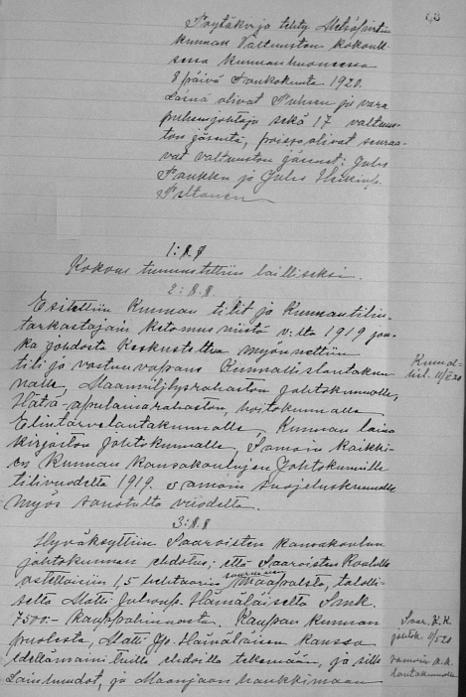 63
Pöytäkirja tehty Metsäpirtin
kunnan Valtuuston kokouk-
sessa kunnanhuoneessa
8 päivä Toukokuuta 1920.
Läsnä olivat Puheen ja vara
puheenjohtaja sekä 17 valtuus-
ton jäsentä, poissa olivat seuraa-
vat valtuuston jäsenet: Juhs
Paukku ja Juhs Heikinp.
Peltonen
1:§.§
Kokous tunnustettiin lailliseksi.
2:§.§.
Esitettiin Kunnan tilit ja Kunnan tilin-
tarkastajain kertomus niistä v:lta 1919 jon-
ka johdosta Keskusteltua myönnettiin
tili ja vastuuvapaus Kunnallislautakun-
nalle, Maanviljelysrahaston Johtokunnalle,
Hätä-apulainarahaston hoitokunnalle
Elintarvelautakunnalle, Kunnan laina
kirjaston Johtokunnalle, Samoin kaikki-
en Kunnan Kansakoulujen Johtokunnille
tilivuodelta 1919. samoin suojeluskunnalle
myös sanotulta vuodelta.
Kunnal-
lisl. 11/5 20
3:§.§
Hyväksyttiin Saaroisten kansakoulun
johtokunnan ehdotus; että Saaroisten Koululle
ostettaisiin 1,5 hehtaarin maapalsta, talolli-
selta Matti Juhonp. Hämäläiseltä Smk.
7500:- kauppahinnasta. Kaupan kunnan
puolesta, Matti Jp. Hämäläisen kanssa
edellämainituilla ehdoilla tekemään, ja sille
Lainhuudot, ja Maanjaon hankkimaan
Saar. K.K.
johtok. 11/5 20
samoin k.k.
lautakunnalle